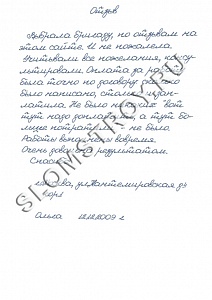 Отзыв
Выбрала бригаду, по отзывам на
этом сайте. И не пожалела.
Учитывали все пожелания, консу-
льтировали. Оплата за
была точно по договору, сколько
было написано, столько и зап-
латила. Не было никаких "вот
тут надо доплатить, а тут бо-
льше потратили" не было.
Работы выполнены вовремя.
Очень довольна результатом.
Спасибо
ул. Кантемировская д
Ольга
SLOMSTROY.RU